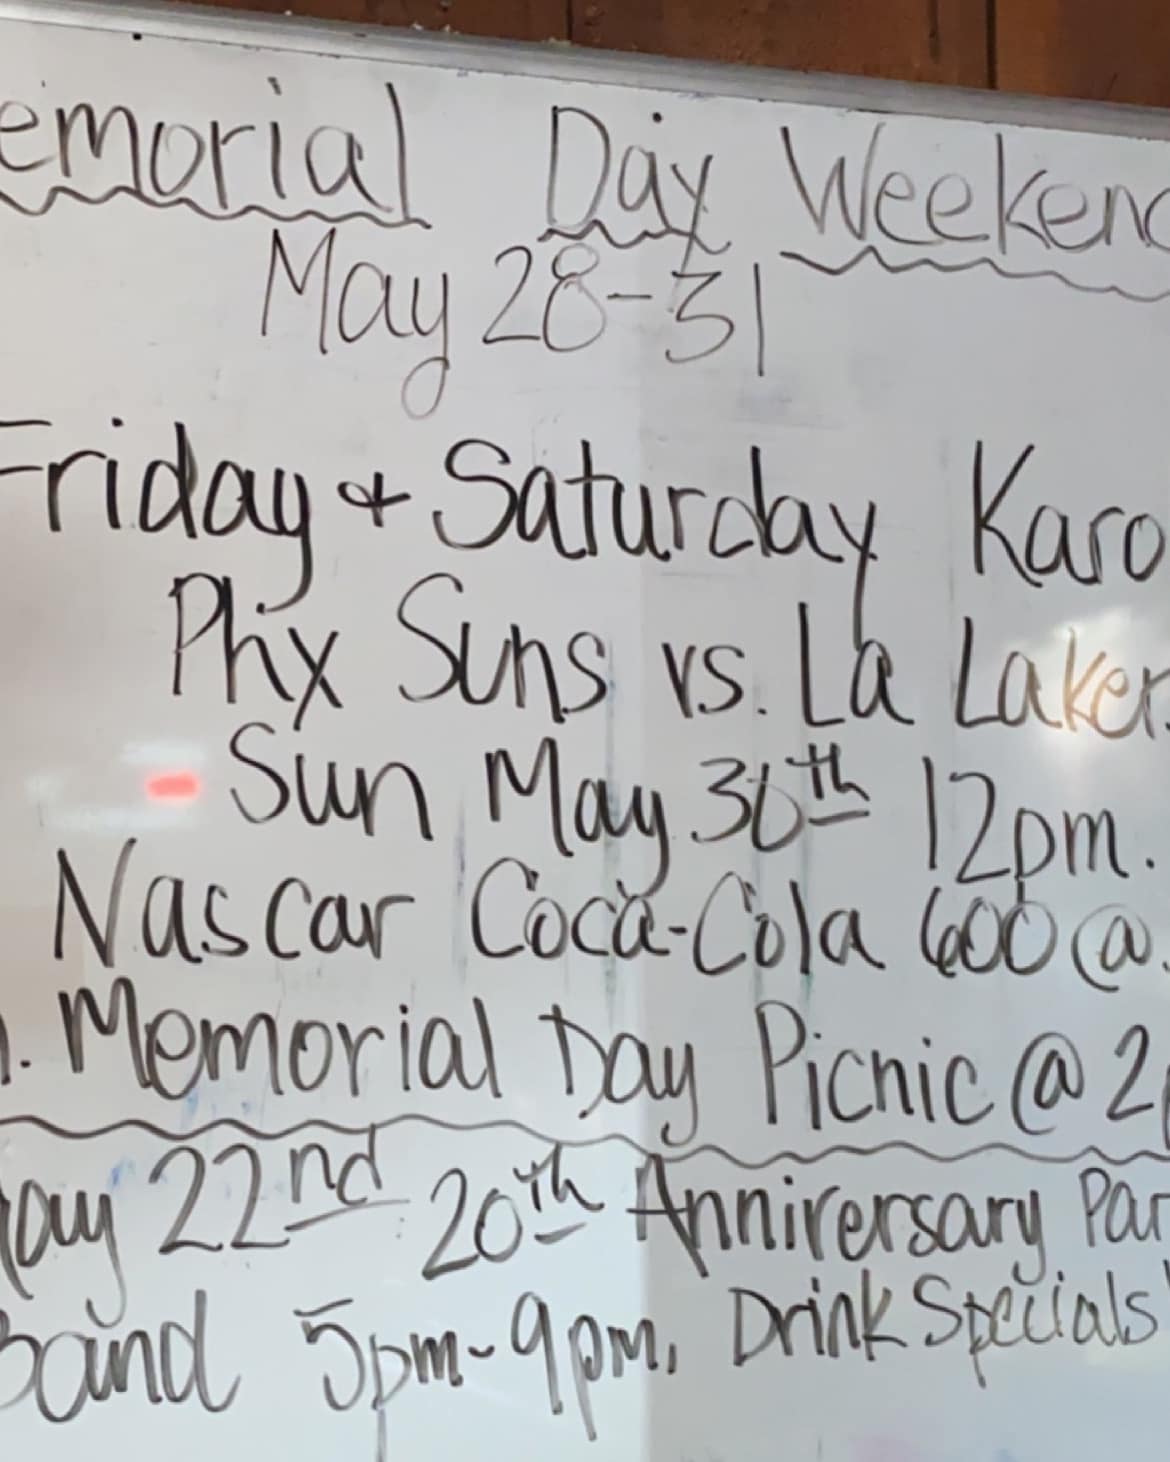 emorial Day Weekend
May 28-31
Friday & Saturday Karo
Phx Suns vs. La Laker
Sun May 30th 12pm.
Nascar Coca-Cola 600 @
. Memorial Day Picnic @ 2
May 22nd 20th Anniversary Par
Band 5pm-9pm. Drink Specials